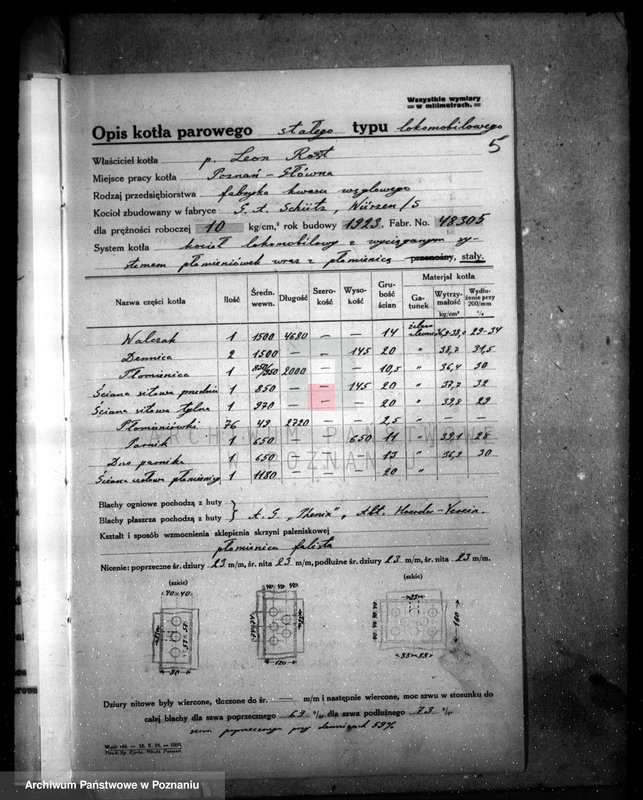 Wszystkie wymiary
w milimetrach.
Opis kotła parowego stałego typu lokomobilowego
5
Właściciel kotła p. Leon Rost
Miejsce pracy kotła Poznań - Główna
Rodzaj przedsiębiorstwa fabryka kwasu węglowego
Kocioł zbudowany w fabryce G. A. Schütz, Würzen/S
dla prężności roboczej 10 kg/cm,² rok budowy 1923, Fabr. No. 48305
System kotła kocioł lokomobilowy z wyciąganym sy-
stemem płomieniówek wraz z płomienicą przenośny, stały.
Nazwa części kotła Ilość Średn. wewn. Długość Szerokość Wysokość Grubość ścian Materjał kotła
Gatunek Wytrzymałość kg/cm² Wydłużenie przy 200/mm %
Walczak 1 1500 4680 — — 14 36,8-38,0 29-34
Dennica 2 1500 — — 145 20 " 38,7 31,5
Płomienica 1 850/950 2000 — — 10,5 " 36,4 30
Ściana sitowa przednia 1 850 — — 145 20 " 37,7 32
Ściana sitowa tylna 1 970 — — 20 " 39,8 29
Płomieniówki 76 49 2720 — — 2,5 " — —
Parnik 1 650 — — 650 11 " 39,1 28
Dno parnika 1 650 — — 13 " 36,2 30
Ściana czołowa płomienicy 1 1180 — — 20 "
ARCHIWUM PAŃSTWOWE
W POZNANIU
Blachy ogniowe pochodzą z huty
Blachy płaszcza pochodzą z huty } A. G. "Phenix", Abt. Hoerder-Verein.
Kształt i sposób wzmocnienia sklepienia skrzyni paleniskowej
płomienica falista
Nicenie: poprzeczne śr. dziury 23 m/m, śr. nita 23 m/m, podłużne śr. dziury 23 m/m, śr. nita 23 m/m.
(szkic) (szkic)
40 40 40 40 40
57 57
80 120 88 88 160
Dziury nitowe były wiercone, tłoczone do śr. — m/m i następnie wiercone, moc szwu w stosunku do
całej blachy dla szwa poprzecznego 69 % dla szwa podłużnego 73 %
szwu poprzecznego przy dennicach 59%
Archiwum Państwowe w Poznaniu